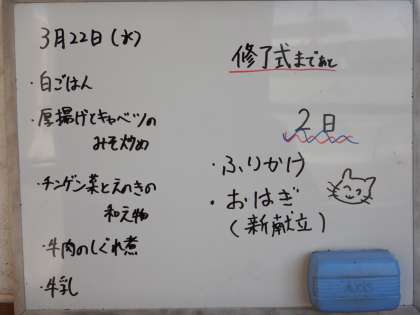 3月22日(水)
・白ごはん
・厚揚げとキャベツの
みそ炒め
・チンゲン菜とえのきの
和え物
・牛肉のしぐれ煮
・牛乳
修了式まであと
2日
・ふりかけ
・おはぎ
(新献立)